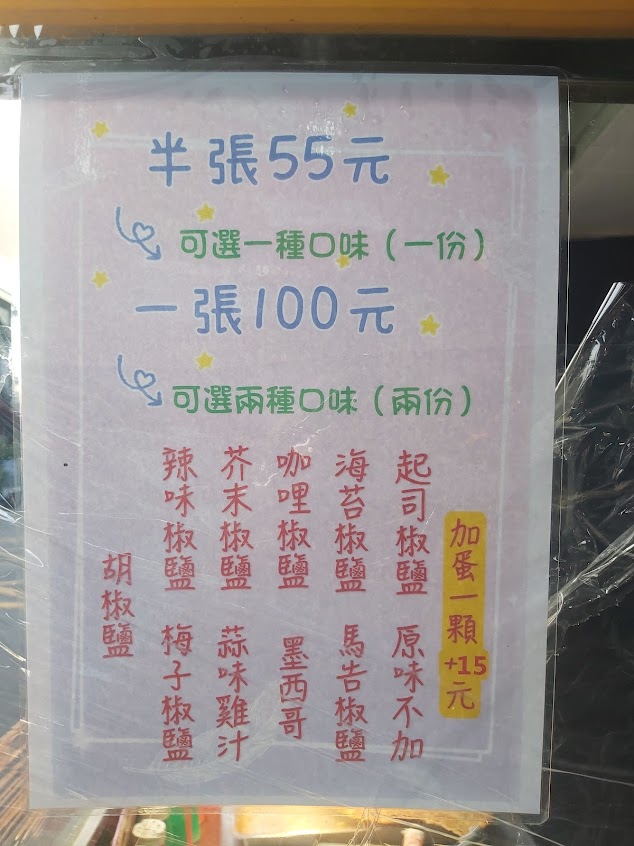 半張55元
可選一種口味（一份）
一張100元
可選兩種口味（兩份）
加蛋一顆+15元
起司椒鹽
原味不加
海苔椒鹽
馬告椒鹽
咖哩椒鹽
墨西哥
芥末椒鹽
蒜味雞汁
辣味椒鹽
梅子椒鹽
胡椒鹽